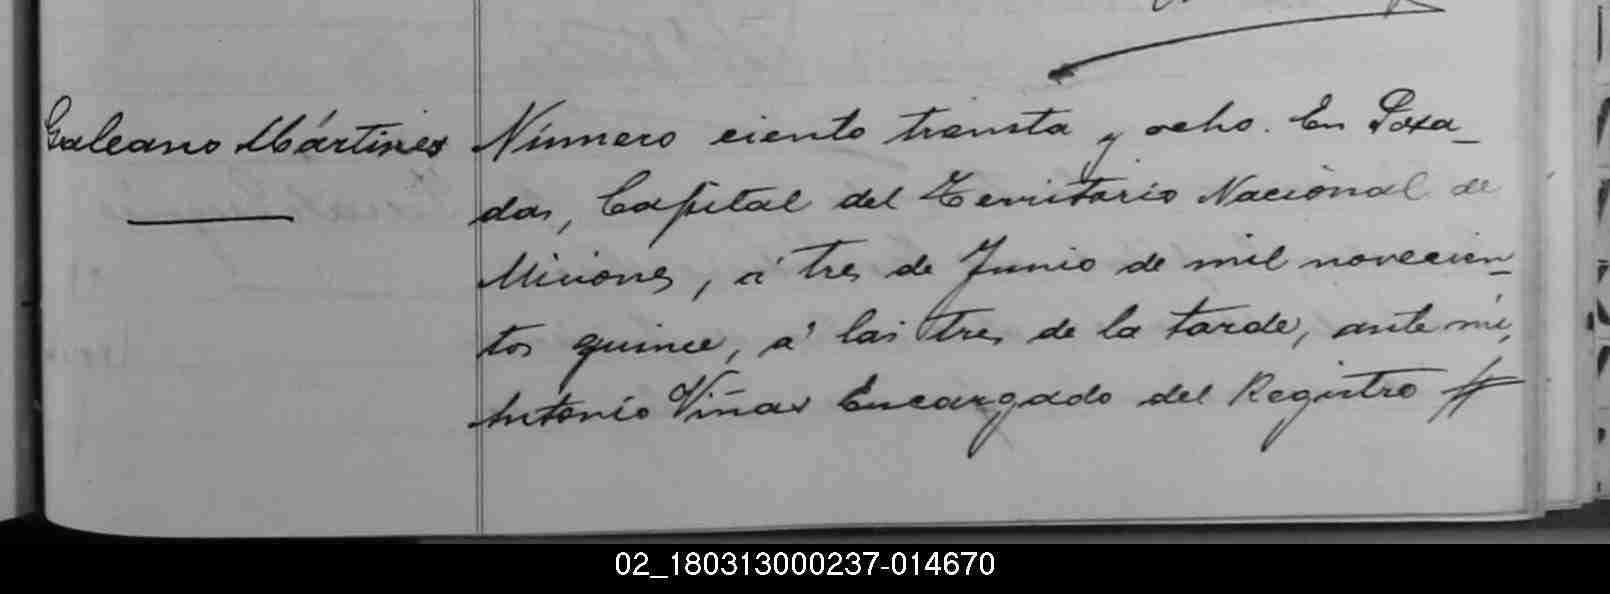 Galeano Mártires
Número ciento treinta y ocho. En Posa-
das, Capital del Territorio Nacional de
Misiones, á tres de Junio de mil novecien-
tos quince, á las tres de la tarde, ante mí,
Antonio Viñas Encargado del Registro
02_180313000237-014670